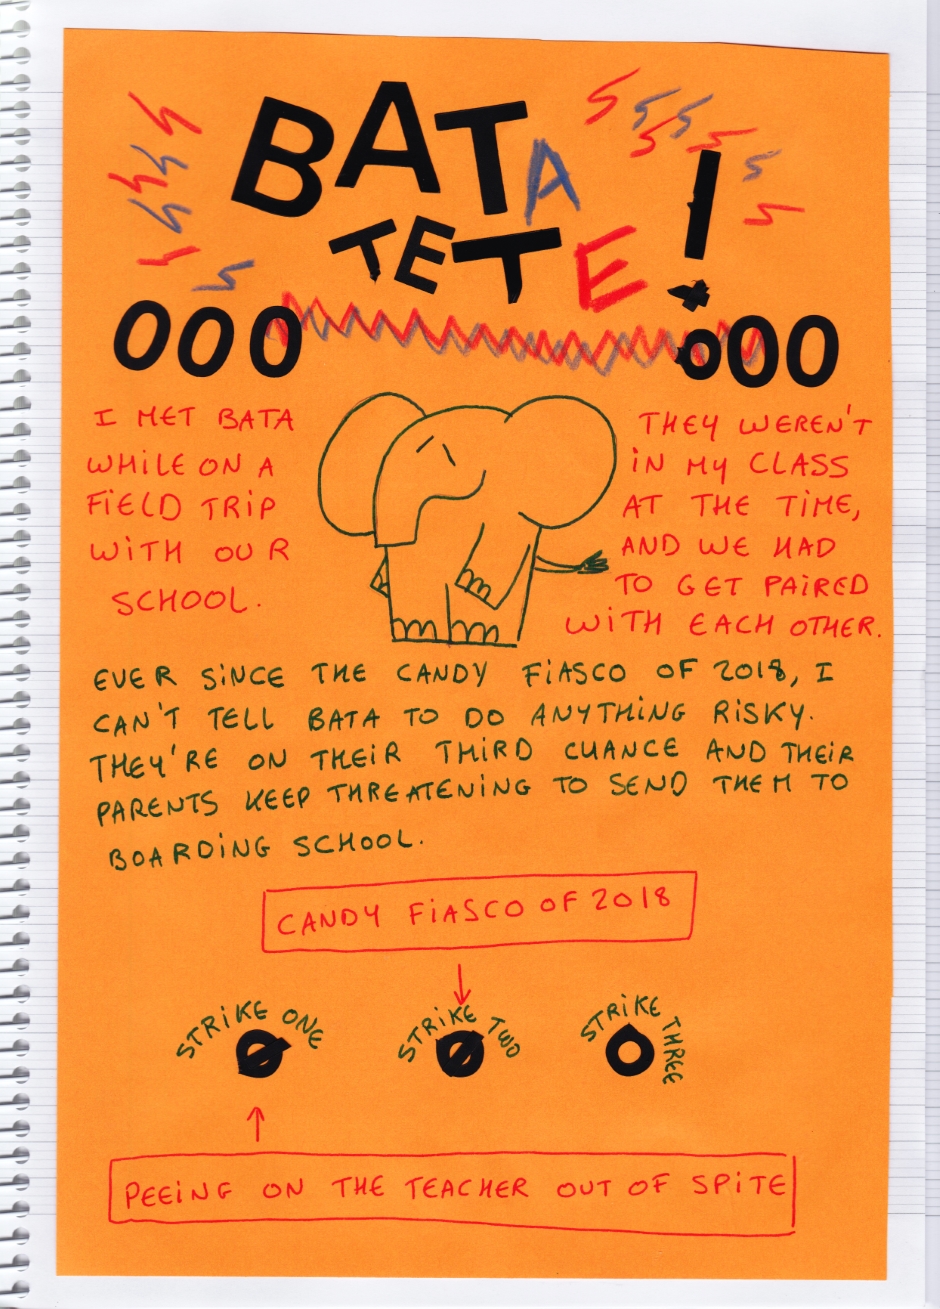 BATA
TETE!
000 000
I MET BATA
WHILE ON A
FIELD TRIP
WITH OUR
SCHOOL.
THEY WEREN'T
IN MY CLASS
AT THE TIME,
AND WE HAD
TO GET PAIRED
WITH EACH OTHER.
EVER SINCE THE CANDY FIASCO OF 2018, I
CAN'T TELL BATA TO DO ANYTHING RISKY.
THEY'RE ON THEIR THIRD CHANCE AND THEIR
PARENTS KEEP THREATENING TO SEND THEM TO
BOARDING SCHOOL.
CANDY FIASCO OF 2018
STRIKE ONE
STRIKE TWO
STRIKE THREE
PEEING ON THE TEACHER OUT OF SPITE